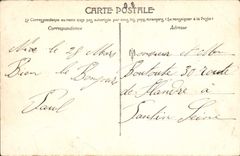 CARTE POSTALE
Correspondance
Adresse
Nice le 28 Mars
Bien le Bonjour
Paul
Monsieur et Mme
Boutoute 30 route
de Flandre à
Pantin Seine